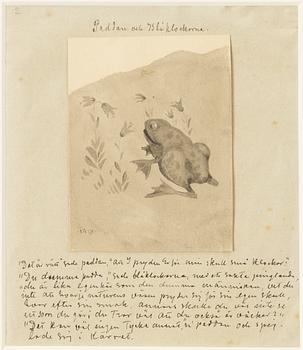 Paddan och Blåklockorna.
"Det är rätt" sade paddan, "att I pryden Er för min skull små klockor!"
"Du dumma padda," sade blåklockorna, med ett sakta pinglande,
"du är lika egenkär som den dumma människan, vet du
inte att hvarje naturens väsen pryder sig för sin egen skull,
hvar efter sin smak, annars skulle du väl inte se
ut som du gör; du tror väl att du också är vacker?"
"Det kan väl ingen tycka annat" sa paddan och speg-
lade sig i kärret.